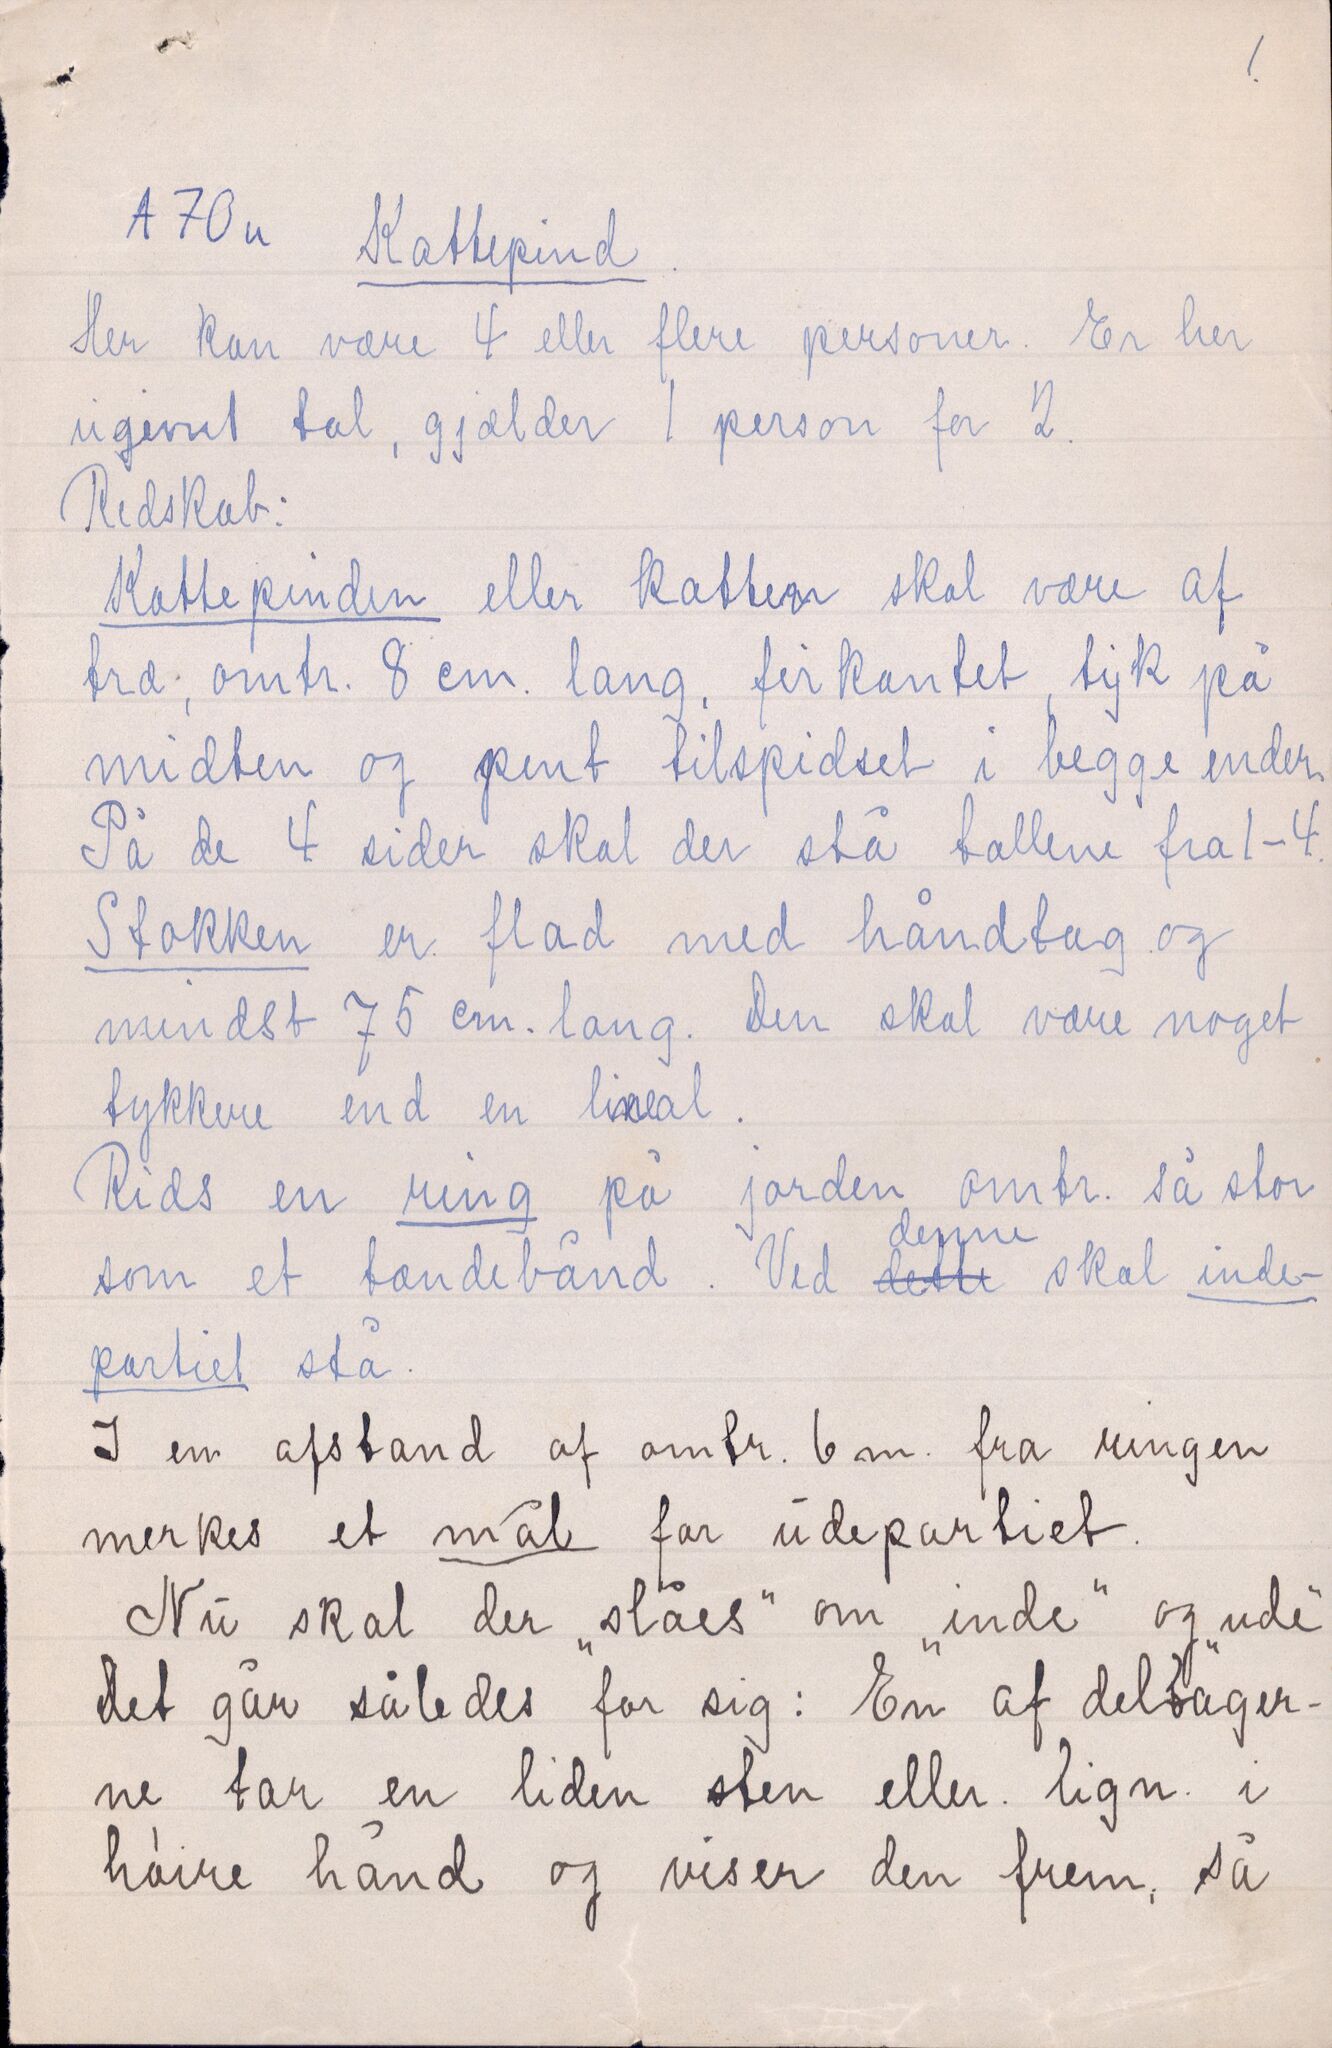 1.
A 70 u Kattepind.
Her kan være 4 eller flere personer. Er her
ugevnt tal, gjælder 1 person for 2.
Redskab:
Kattepinden eller katten skal være af
træ, omtr. 8 cm. lang, firkantet, tyk på
midten og pent tilspidset i begge ender.
På de 4 sider skal der stå tallene fra 1-4.
Stokken er flad med håndtag og
mindst 75 cm. lang. Den skal være noget
tykkere end en lineal.
Rids en ring på jorden omtr. så stor
som et tøndebånd. Ved dette denne skal inde-
partiet stå.
I en afstand af omtr. 6 m. fra ringen
merkes et mål for udepartiet.
Nu skal der „slåes" om „inde" og „ude"
Det går således for sig: En af deltager-
ne tar en liden sten eller lign. i
høire hånd og viser den frem, så